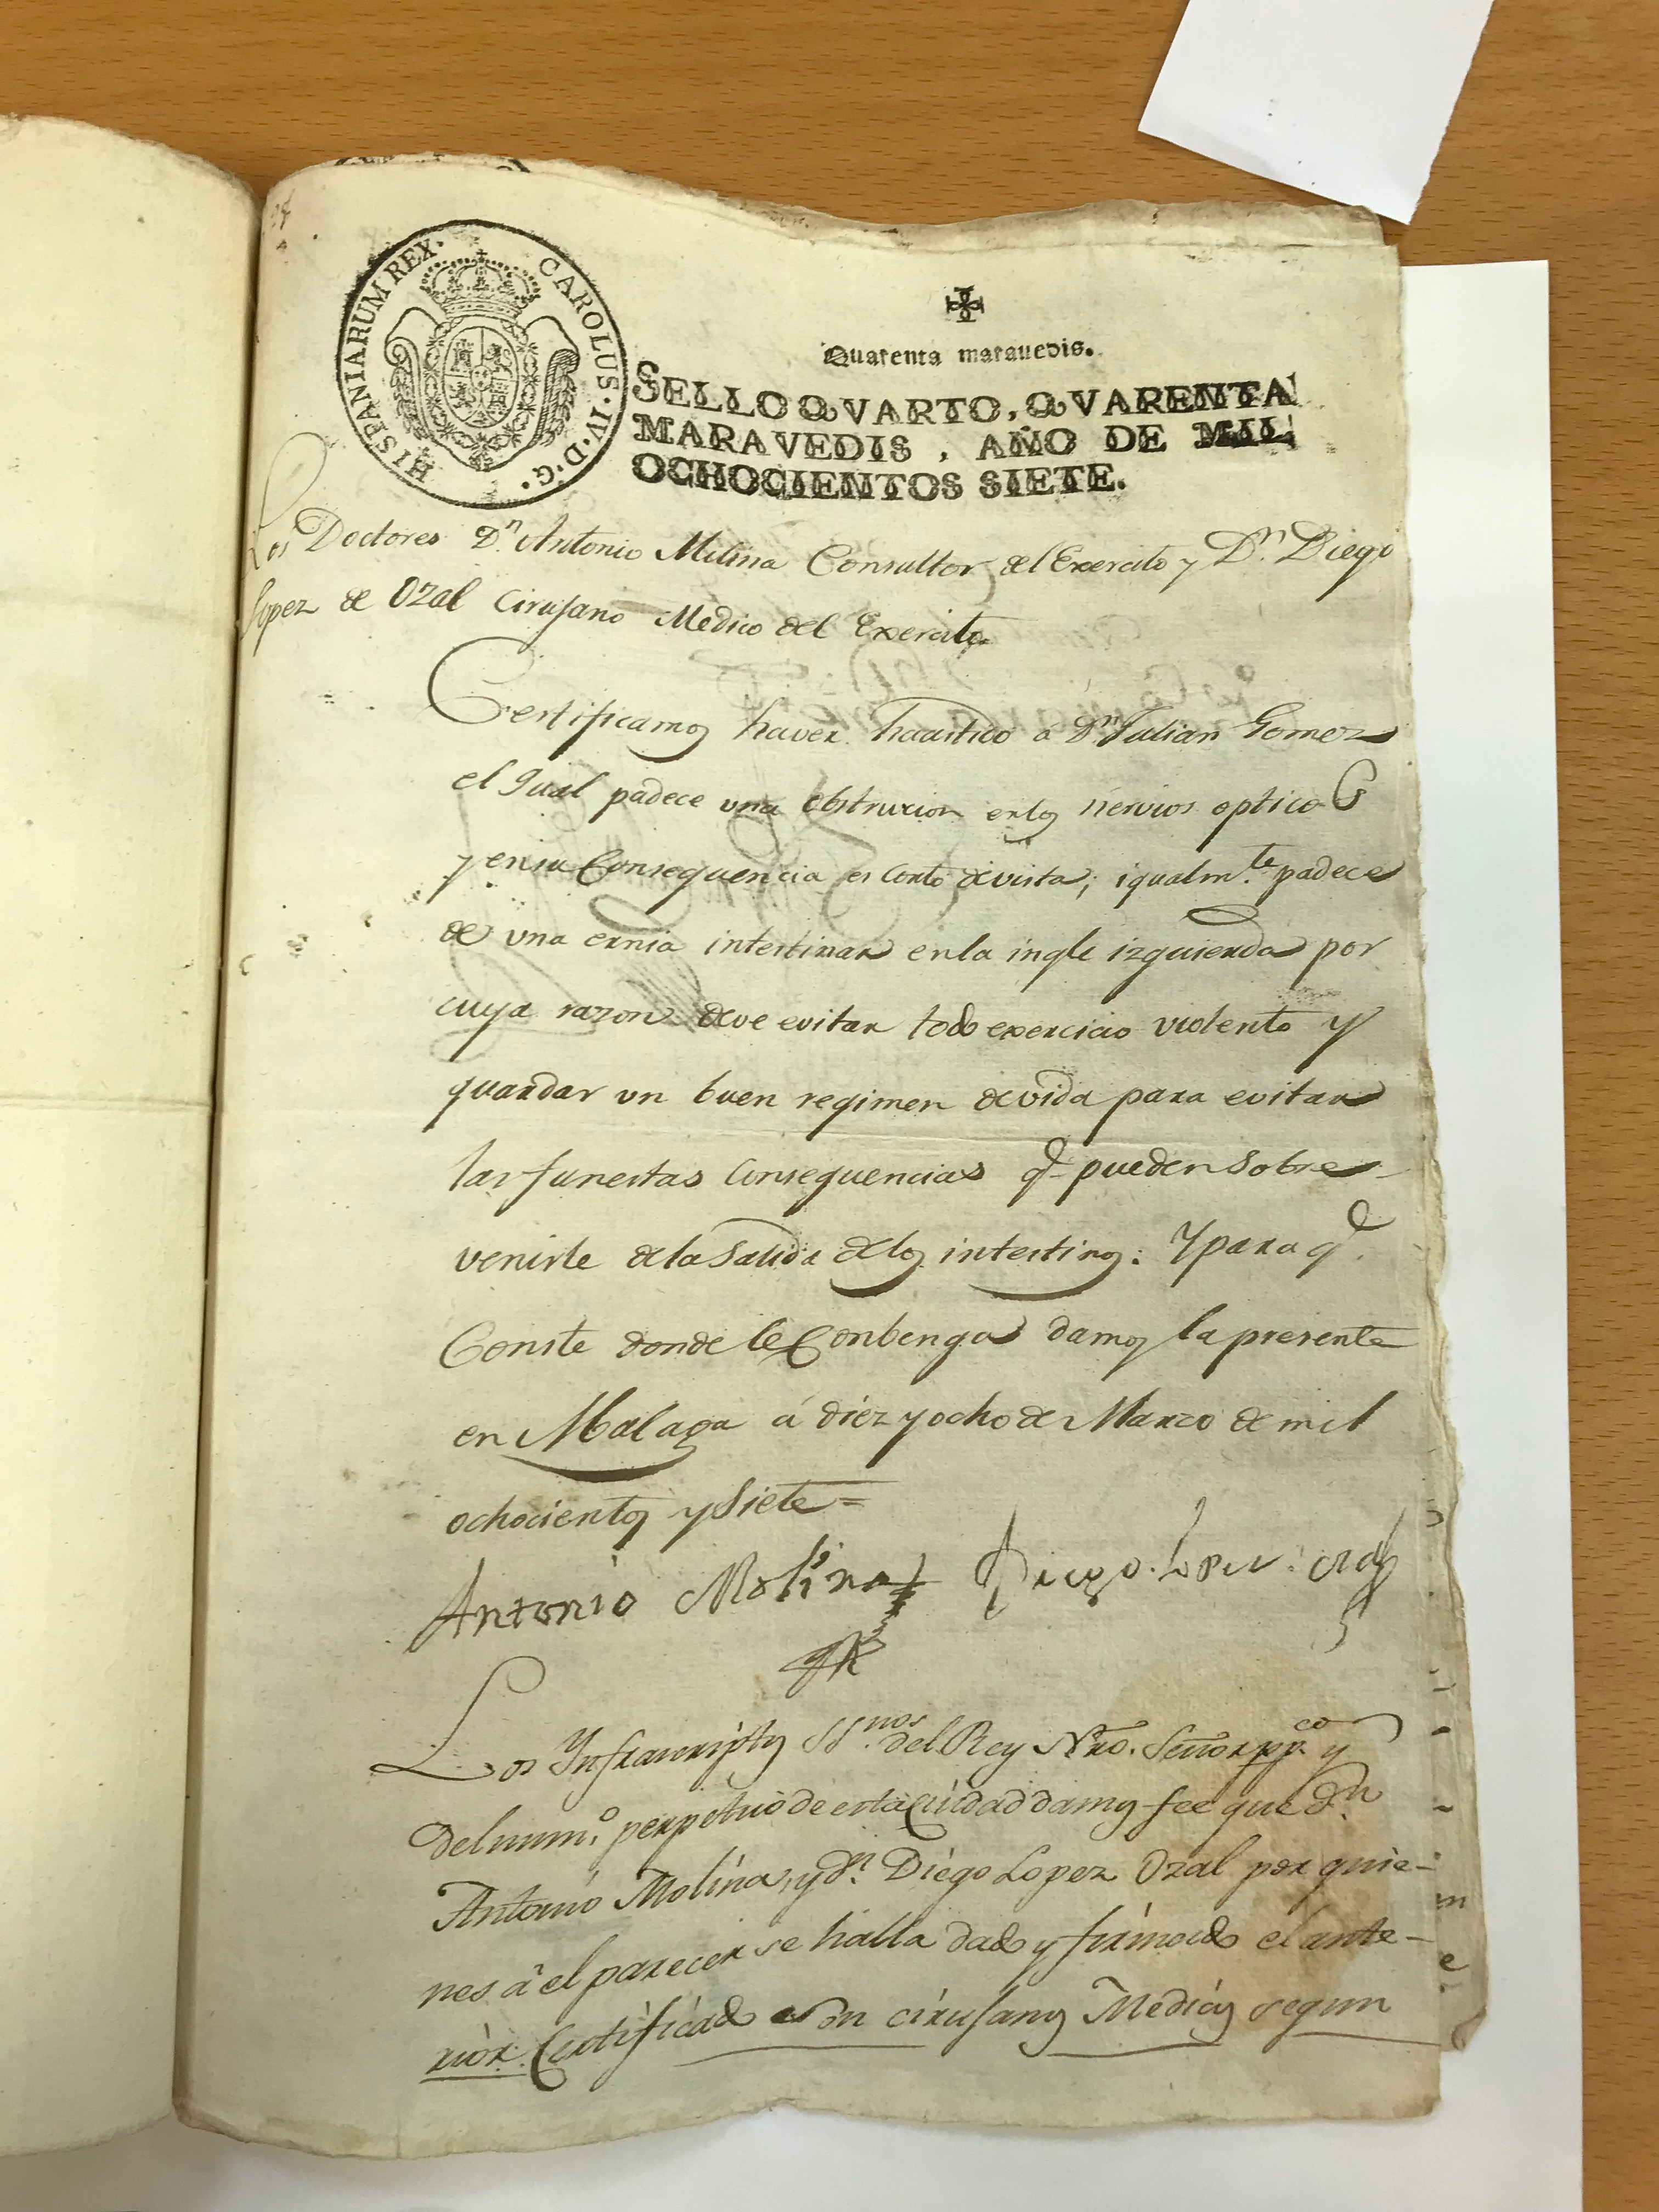 HISPANIARUM REX. CAROLUS. IV. D. G.
Quarenta marauedis.
SELLO QVARTO, QVARENTA
MARAVEDIS, AÑO DE MIL
OCHOCIENTOS SIETE.
Los Doctores Dn. Antonio Molina Consultor del Exercito y Dn. Diego
Lopez de Ozal Cirujano Medico del Exercito
Certificamos haver haaistido á Dn. Julian Gomez
el qual padece una obstruxion en los nervios opticos
y en su Consequencia es corto de vista; igualmte. padece
de una ernia intestinar en la ingle izquierda por
cuya razon deve evitar todo exercicio violento y
guardar un buen regimen de vida para evitar
las funestas Consequencias q. pueden Sobre-
venirle de la Salida de los intestinos: Y para q.
Conste donde le Conbenga damos la presente
en Malaga á diez y ocho de Marzo de mil
ochocientos y Siete =
Antonio Molina Diego Lopez Ozal
Los Infrascriptos SSnos. del Rey Nro. Señor ppco. y
del numo. perpetuo de esta Ciudad damos fee que Dn.
Antonio Molina, y Dn. Diego Lopez Ozal por quie-
nes á el parecer se halla dado y firmado el ante-
rior Certificado son cirujanos Medicos segun